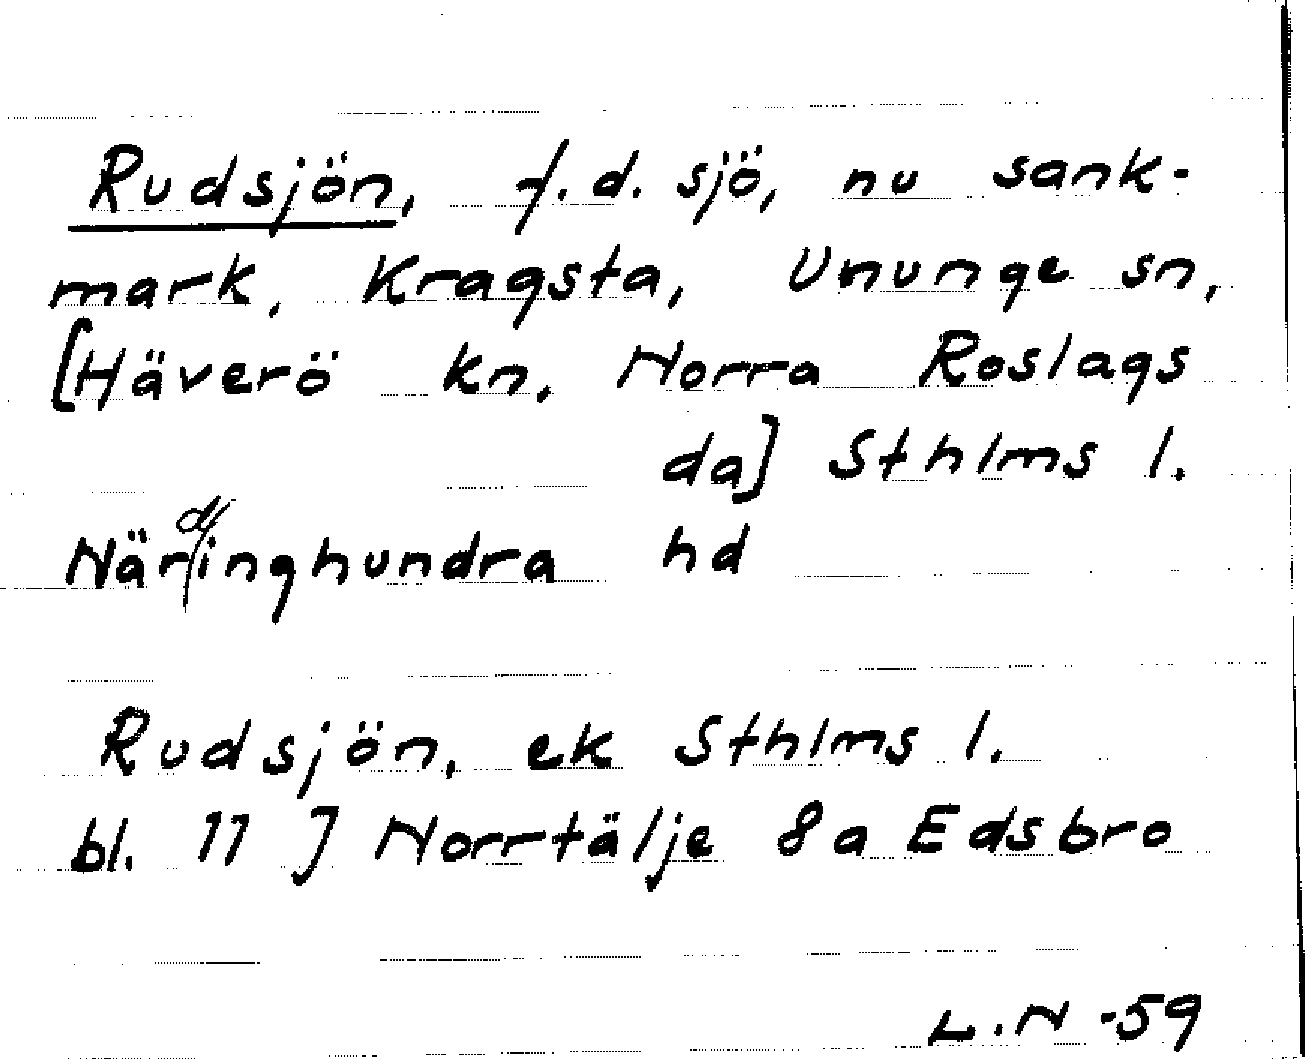 Rudsjön, f.d. sjö, nu sank-
mark, Kragsta, Ununge sn,
[Häverö kn. Norra Roslags
da] Sthlms l.
Närdinghundra hd
Rudsjön, ek Sthlms l.
bl. 11 J Norrtälje 8a Edsbro
L.N -59